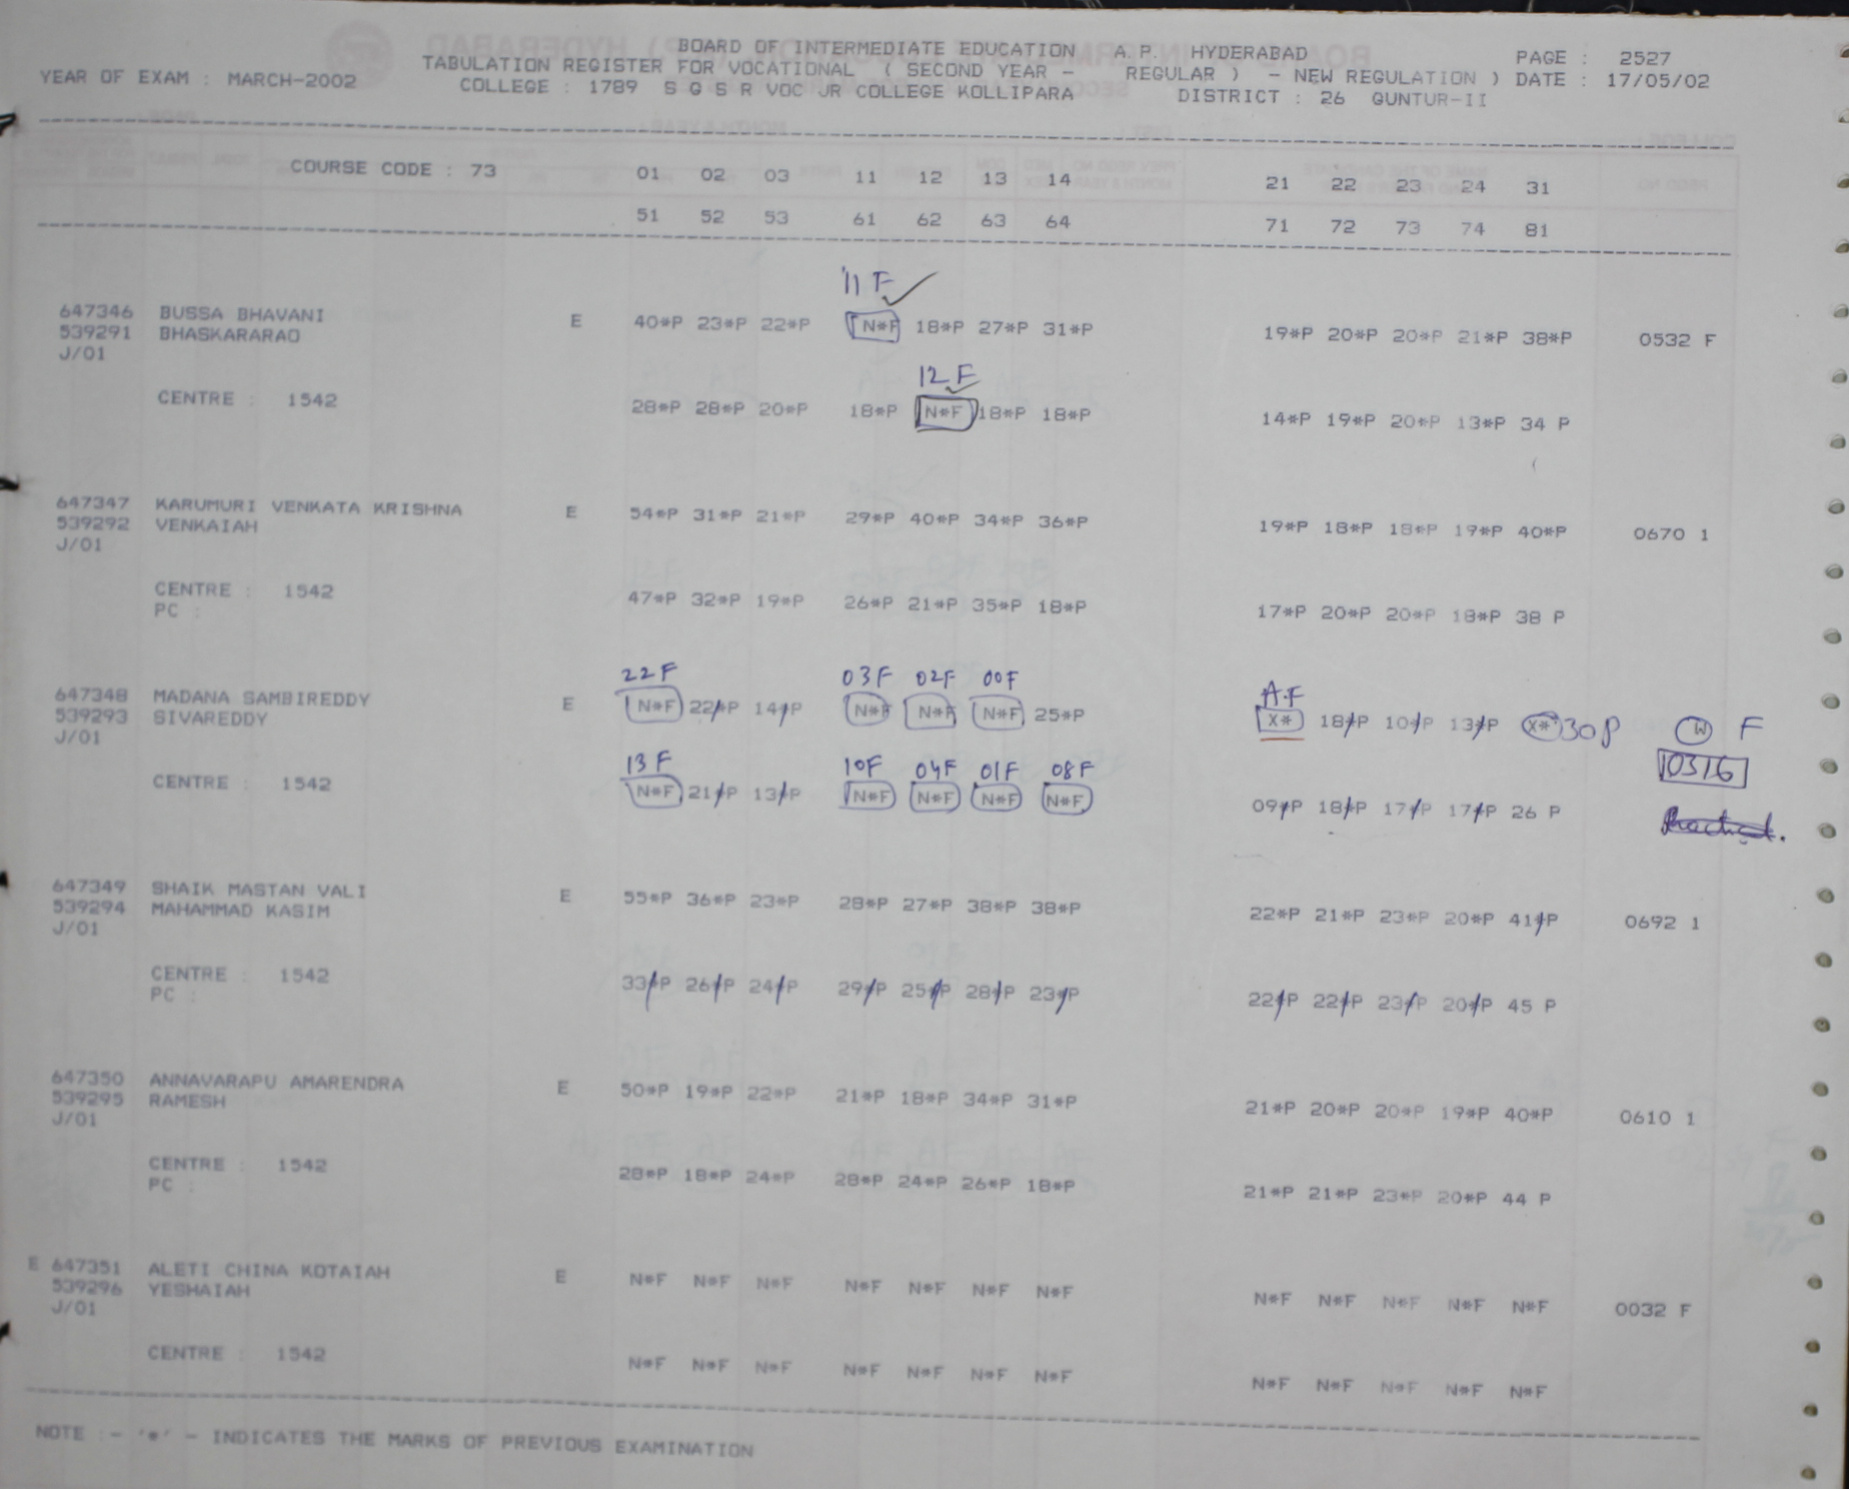 BOARD OF INTERMEDIATE EDUCATION A.P. HYDERABAD PAGE : 2527
YEAR OF EXAM : MARCH-2002 TABULATION REGISTER FOR VOCATIONAL ( SECOND YEAR - REGULAR ) - NEW REGULATION ) DATE : 17/05/02
COLLEGE : 1789 S G S R VOC JR COLLEGE KOLLIPARA DISTRICT : 26 GUNTUR-II
COURSE CODE : 73 01 02 03 11 12 13 14 21 22 23 24 31
51 52 53 61 62 63 64 71 72 73 74 81
11 F
647346 BUSSA BHAVANI E 40*P 23*P 22*P N*F 18*P 27*P 31*P 19*P 20*P 20*P 21*P 38*P 0532 F
539291 BHASKARARAO
J/01
12 F
CENTRE : 1542 28*P 28*P 20*P 18*P N*F 18*P 18*P 14*P 19*P 20*P 13*P 34 P
647347 KARUMURI VENKATA KRISHNA E 54*P 31*P 21*P 29*P 40*P 34*P 36*P 19*P 18*P 18*P 19*P 40*P 0670 1
539292 VENKAIAH
J/01
CENTRE : 1542 47*P 32*P 19*P 26*P 21*P 35*P 18*P 17*P 20*P 20*P 18*P 38 P
PC :
22F 03F 02F 00F A.F
647348 MADANA SAMBIREDDY E N*F 22*P 14*P N*F N*F N*F 25*P X* 18*P 10*P 13*P X* 30P W F
539293 SIVAREDDY
J/01
0316
13F 10F 04F 01F 08F
CENTRE : 1542 N*F 21*P 13*P N*F N*F N*F N*F 09*P 18*P 17*P 17*P 26 P
647349 SHAIK MASTAN VALI E 55*P 36*P 23*P 28*P 27*P 38*P 38*P 22*P 21*P 23*P 20*P 41*P 0692 1
539294 MAHAMMAD KASIM
J/01
CENTRE : 1542 33*P 26*P 24*P 29*P 25*P 28*P 23*P 22*P 22*P 23*P 20*P 45 P
PC :
647350 ANNAVARAPU AMARENDRA E 50*P 19*P 22*P 21*P 18*P 34*P 31*P 21*P 20*P 20*P 19*P 40*P 0610 1
539295 RAMESH
J/01
CENTRE : 1542 28*P 18*P 24*P 28*P 24*P 26*P 18*P 21*P 21*P 23*P 20*P 44 P
PC :
E 647351 ALETI CHINA KOTAIAH E N*F N*F N*F N*F N*F N*F N*F N*F N*F N*F N*F N*F 0032 F
539296 YESHAIAH
J/01
CENTRE : 1542 N*F N*F N*F N*F N*F N*F N*F N*F N*F N*F N*F N*F
NOTE :- '*' - INDICATES THE MARKS OF PREVIOUS EXAMINATION